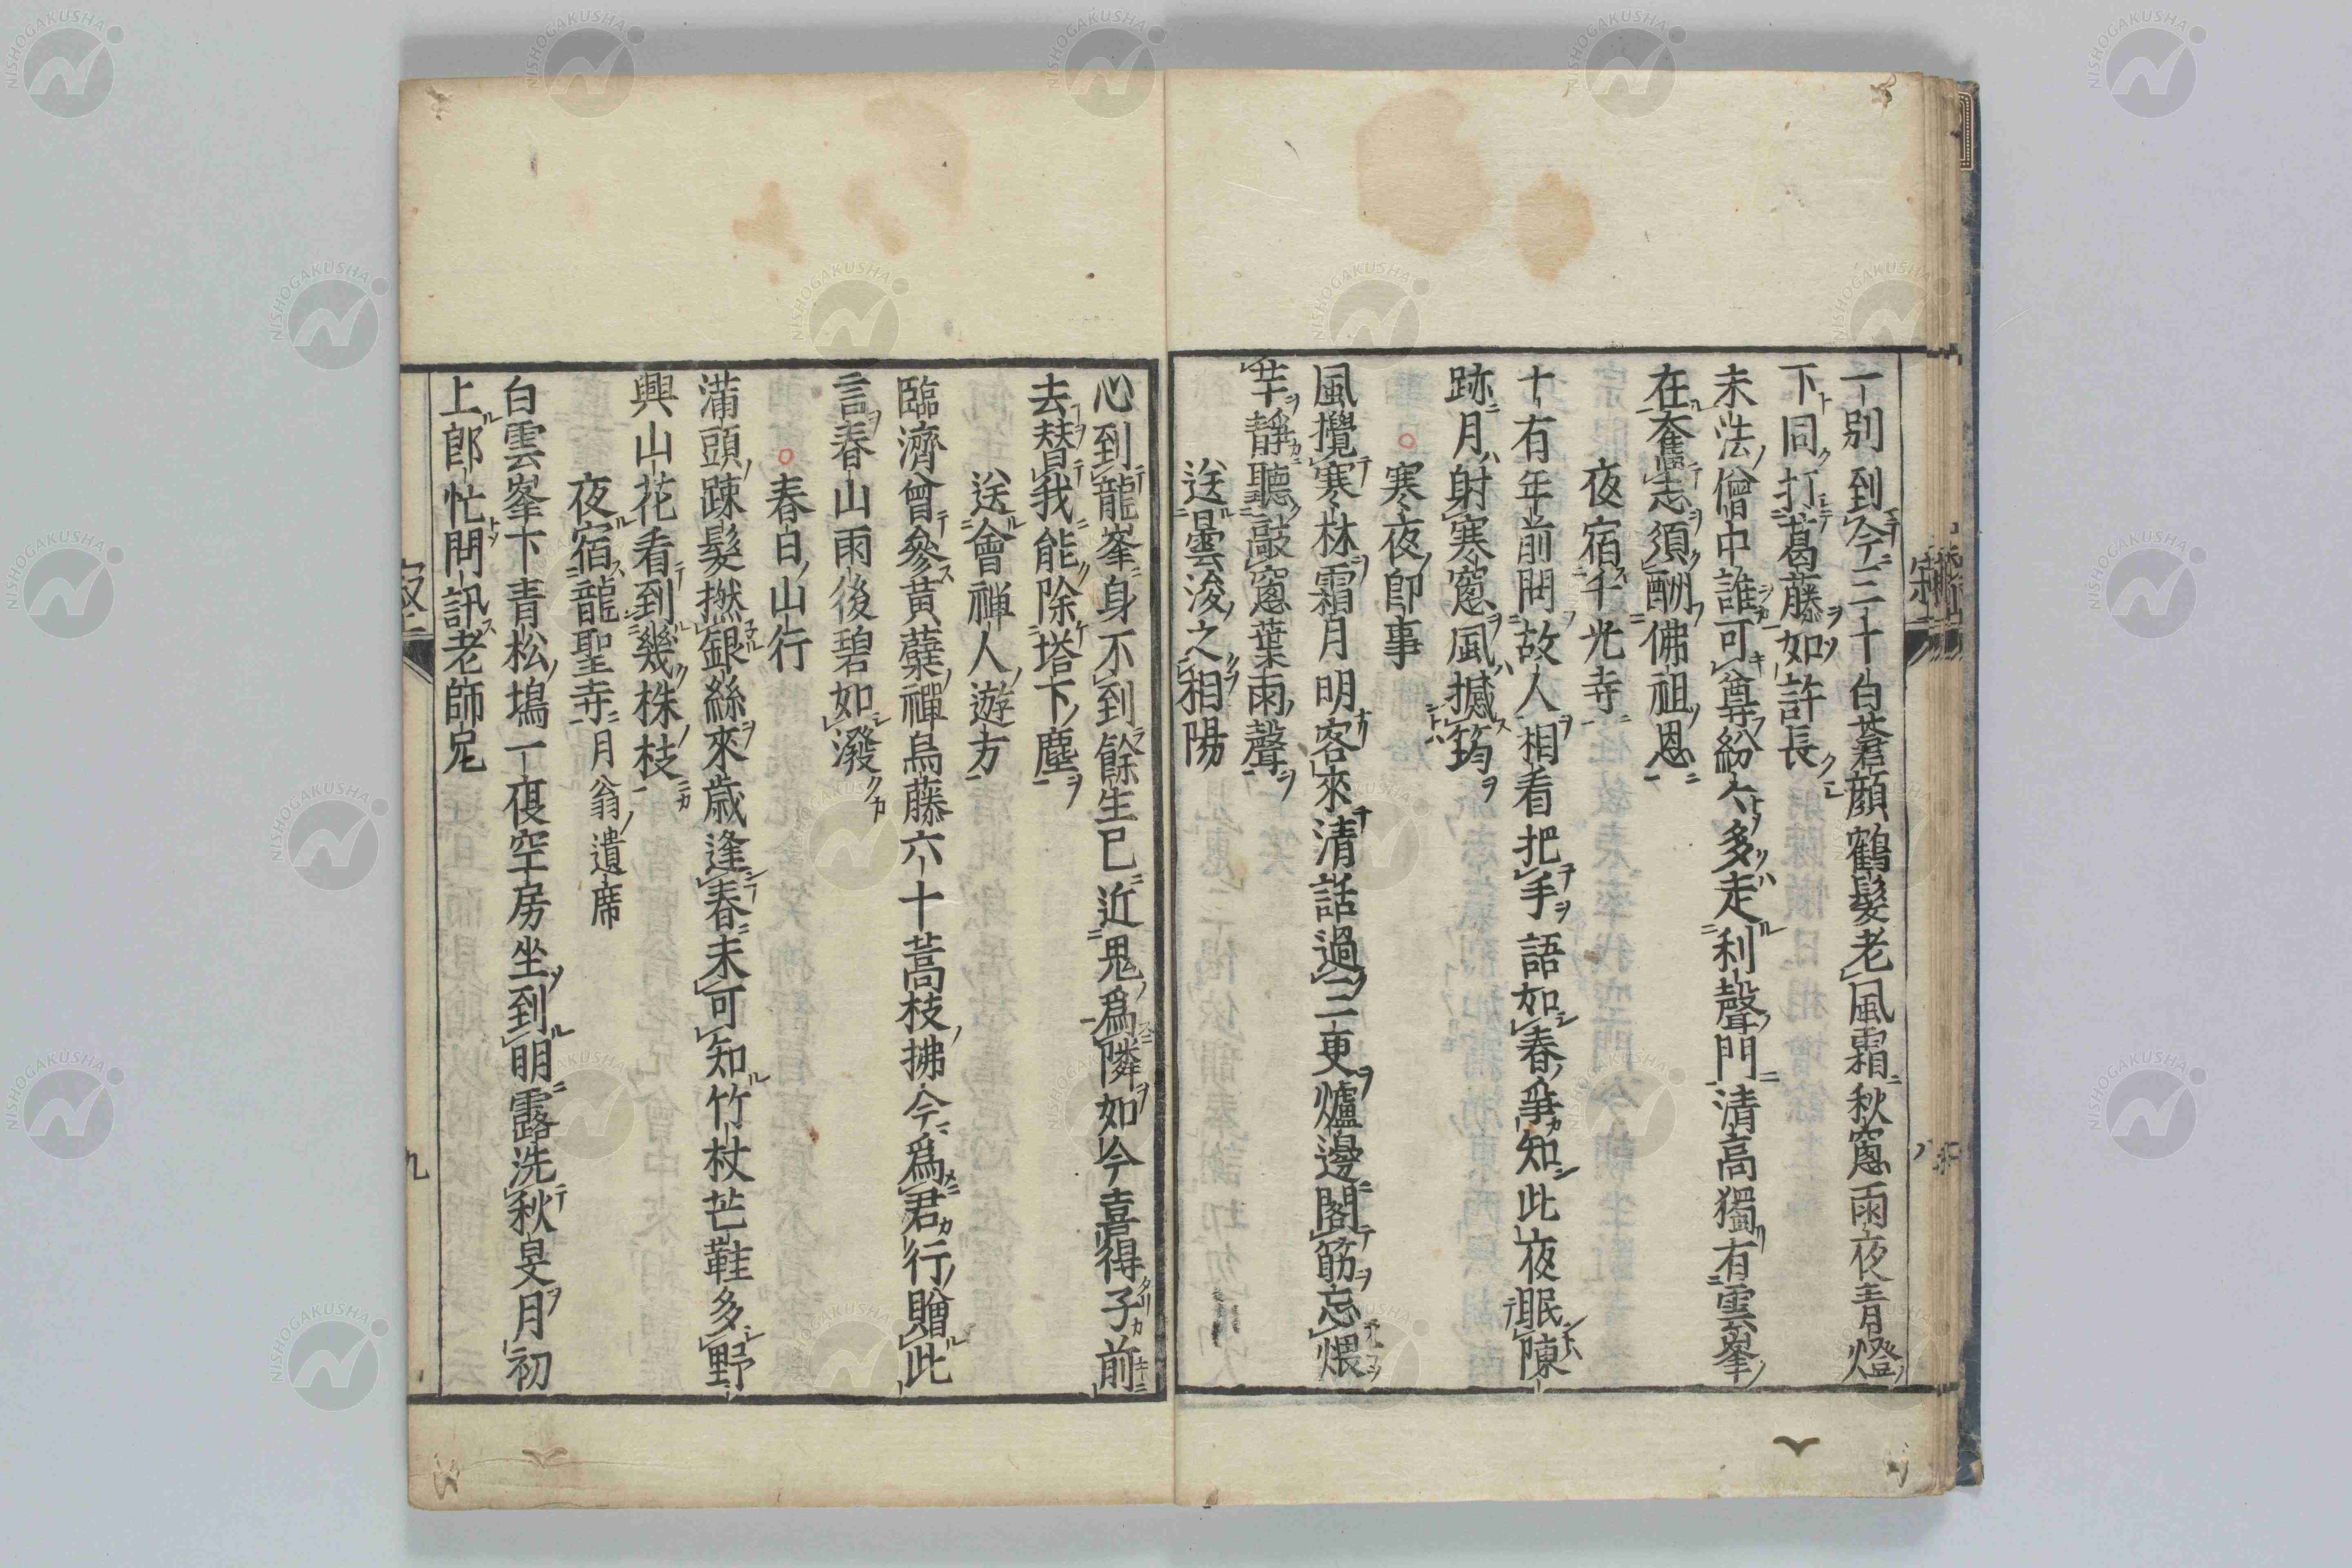 一別到今三十白蒼顔鶴髮老風霜秋窻雨夜青燈
下同打葛藤如許長
末法僧中誰可尊紛々多走利聲門清高獨有雲峯
在奮志須酬佛祖恩
夜宿千光寺
十有年前問故人相看把手語如春爭知此夜眠陳
跡月射寒窻風撼筠
寒夜即事
風攪寒林霜月明客來清話過三更爐邊閣筯忘煨
芋靜聽敲窻葉雨聲
送曇浚之相陽
心到龍峯身不到餘生已近鬼爲隣如今喜得子前
去替我能除塔下塵
送會禅人遊方
臨濟曾參黃蘗禪烏藤六十蒿枝拂今爲君行贈此
言春山雨後碧如潑
春日山行
滿頭踈髮撚銀絲來歳逢春未可知竹杖芒鞋多野
興山花看到幾株枝
夜宿龍聖寺月翁遺席
白雲峯下青松塢一夜空房坐到明露洗秋旻月初
上郎忙問訊老師兄
九
NISHOGAKUSHA